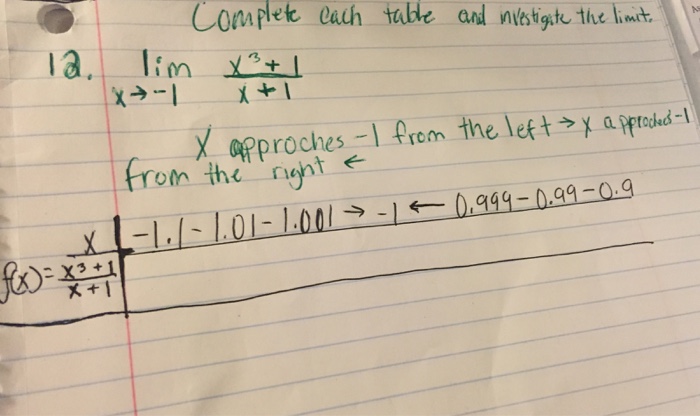 Complete each table and nvestigate the limit.
12. lim x³+1
x→-1 x+1
X approches -1 from the left → x approches -1
from the right ←
x -1.1 -1.01 -1.001 → -1 ← 0.999 -0.99 -0.9
f(x)= x³+1
x+1